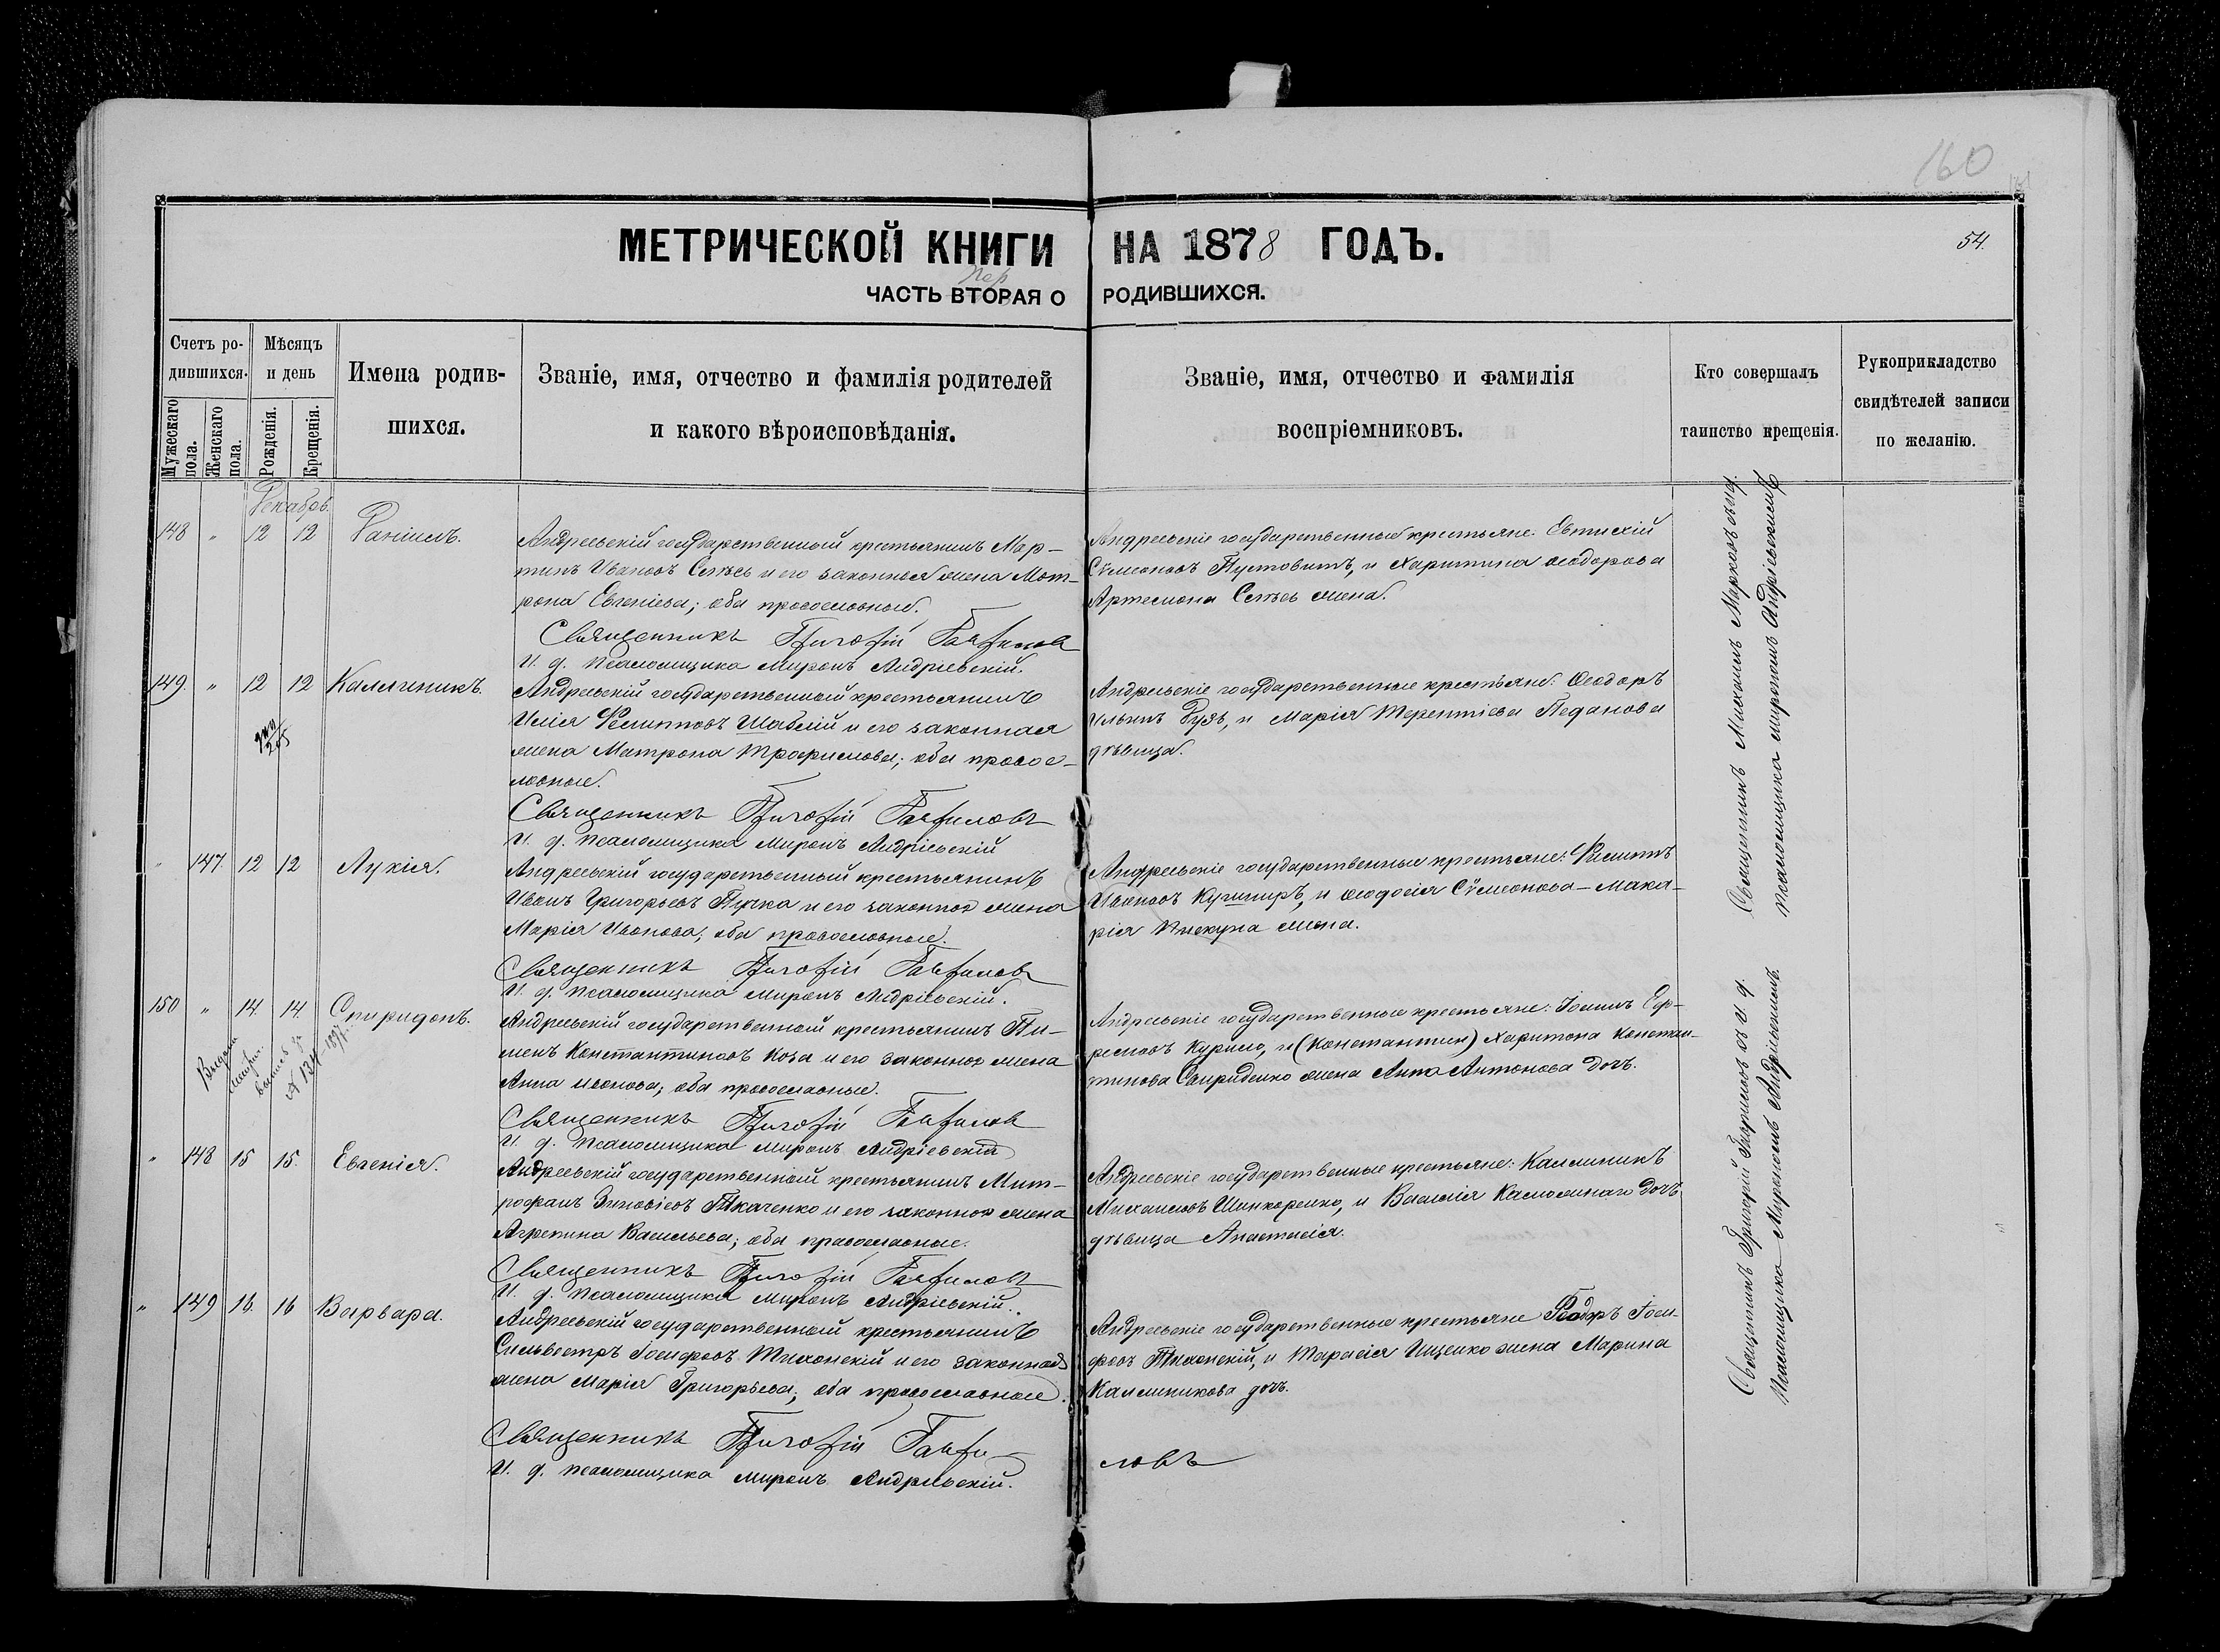 160
54.
МЕТРИЧЕСКОЙ КНИГИ НА 1878 ГОДЪ.
Пер
ЧАСТЬ ВТОРАЯ О РОДИВШИХСЯ.
Счетъ родившихся.
Мужескаго пола.
Женскаго пола.
Мѣсяцъ и день
Рожденія.
Крещенія.
Имена родившихся.
Званіе, имя, отчество и фамилія родителей
и какого вѣроисповѣданія.
Званіе, имя, отчество и фамилія
воспріемниковъ.
Кто совершалъ
таинство крещенія.
Рукоприкладство
свидѣтелей записи
по желанію.
Декабрь.
148 " 12 12 Даніилъ.
Андреевскій государственный крестьянинъ Мар-
тинъ Ивановъ и его законная жена Мот-
рона Евгеніева; оба православные.
Священникъ Григорій Гаврилов
И. д. псаломщика Миронъ Андріевскій.
Андреевскіе государственные крестьяне: Евтихій
Сѵмеоновъ Пустовитъ, и Харитина Ѳеодорова
Артемона жена.
149. " 12 12 Каллиникъ.
Андреевскій государственный крестьянинъ
Илія Филипповъ Шаблій и его законная
жена Матрона Трофимова; оба право-
славные.
Священникъ Григорій Гавриловъ
И. д. псаломщика Миронъ Андріевскій
Андреевскіе государственные крестьяне: Ѳеодоръ
Ильинъ Гузь, и Марія Терентіева Педанова
дѣвица.
" 147. 12 12 Лукія.
Андреевскій государственный крестьянинъ
Иванъ Григорьевъ Пучка и его законная жена
Марія Иванова; оба православные.
Священникъ Григорій Гаврилов
И. д. псаломщика Миронъ Андріевскій.
Андреевскіе государственные крестьяне: Филиппъ
Ивановъ Кушниръ, и Ѳеодосія Сѵмеонова – Мака-
рія жена.
150 " 14. 14 Спиридонъ.
Выдана
метрич.
выпись за
№ 134 1897.
Андреевскій государственный крестьянинъ Пи-
менъ Константиновъ Коза и его законная жена
Анна Иванова; оба православные.
Священникъ Григорій Гаврилов
И. д. псаломщика Миронъ Андріевскій
Андреевскіе государственные крестьяне: Іоаннъ Еф-
ремовъ Курило, и (Константин) Харитона Констан-
тинова Спириденко жена Анна Антонова дочь.
" 148 15 15. Евгенія.
Андреевскій государственный крестьянинъ Мит-
рофанъ Зиновіевъ Ткаченко и его законная жена
Агрепина Васильева; оба православные.
Священникъ Григорій Гаврилов
И. д. псаломщика Миронъ Андріевскій.
Андреевскіе государственные крестьяне: Каллиникъ
Михаиловъ Шинкаренко, и Василія дочь
дѣвица Анастасія.
" 149 16. 16 Варвара.
Андреевскій государственный крестьянинъ
Сильвестръ Іосифовъ Тихонскій и его законная
жена Марія Григорьева; оба православные.
Священникъ Григорій Гаври-
ловъ
И. д. псаломщика Миронъ Андріевскій.
Андреевскіе государственные крестьяне Ѳеодоръ Іоси-
фовъ Тихонскій, и Тарасія Ищенко жена Марина
Каллиникова дочь.
Священникъ Михаилъ Марковъ съ и. д.
псаломщика Мирономъ Андріевскимъ
Священникъ Григорій Гавриловъ съ и. д.
псаломщика Мирономъ Андріевскимъ.